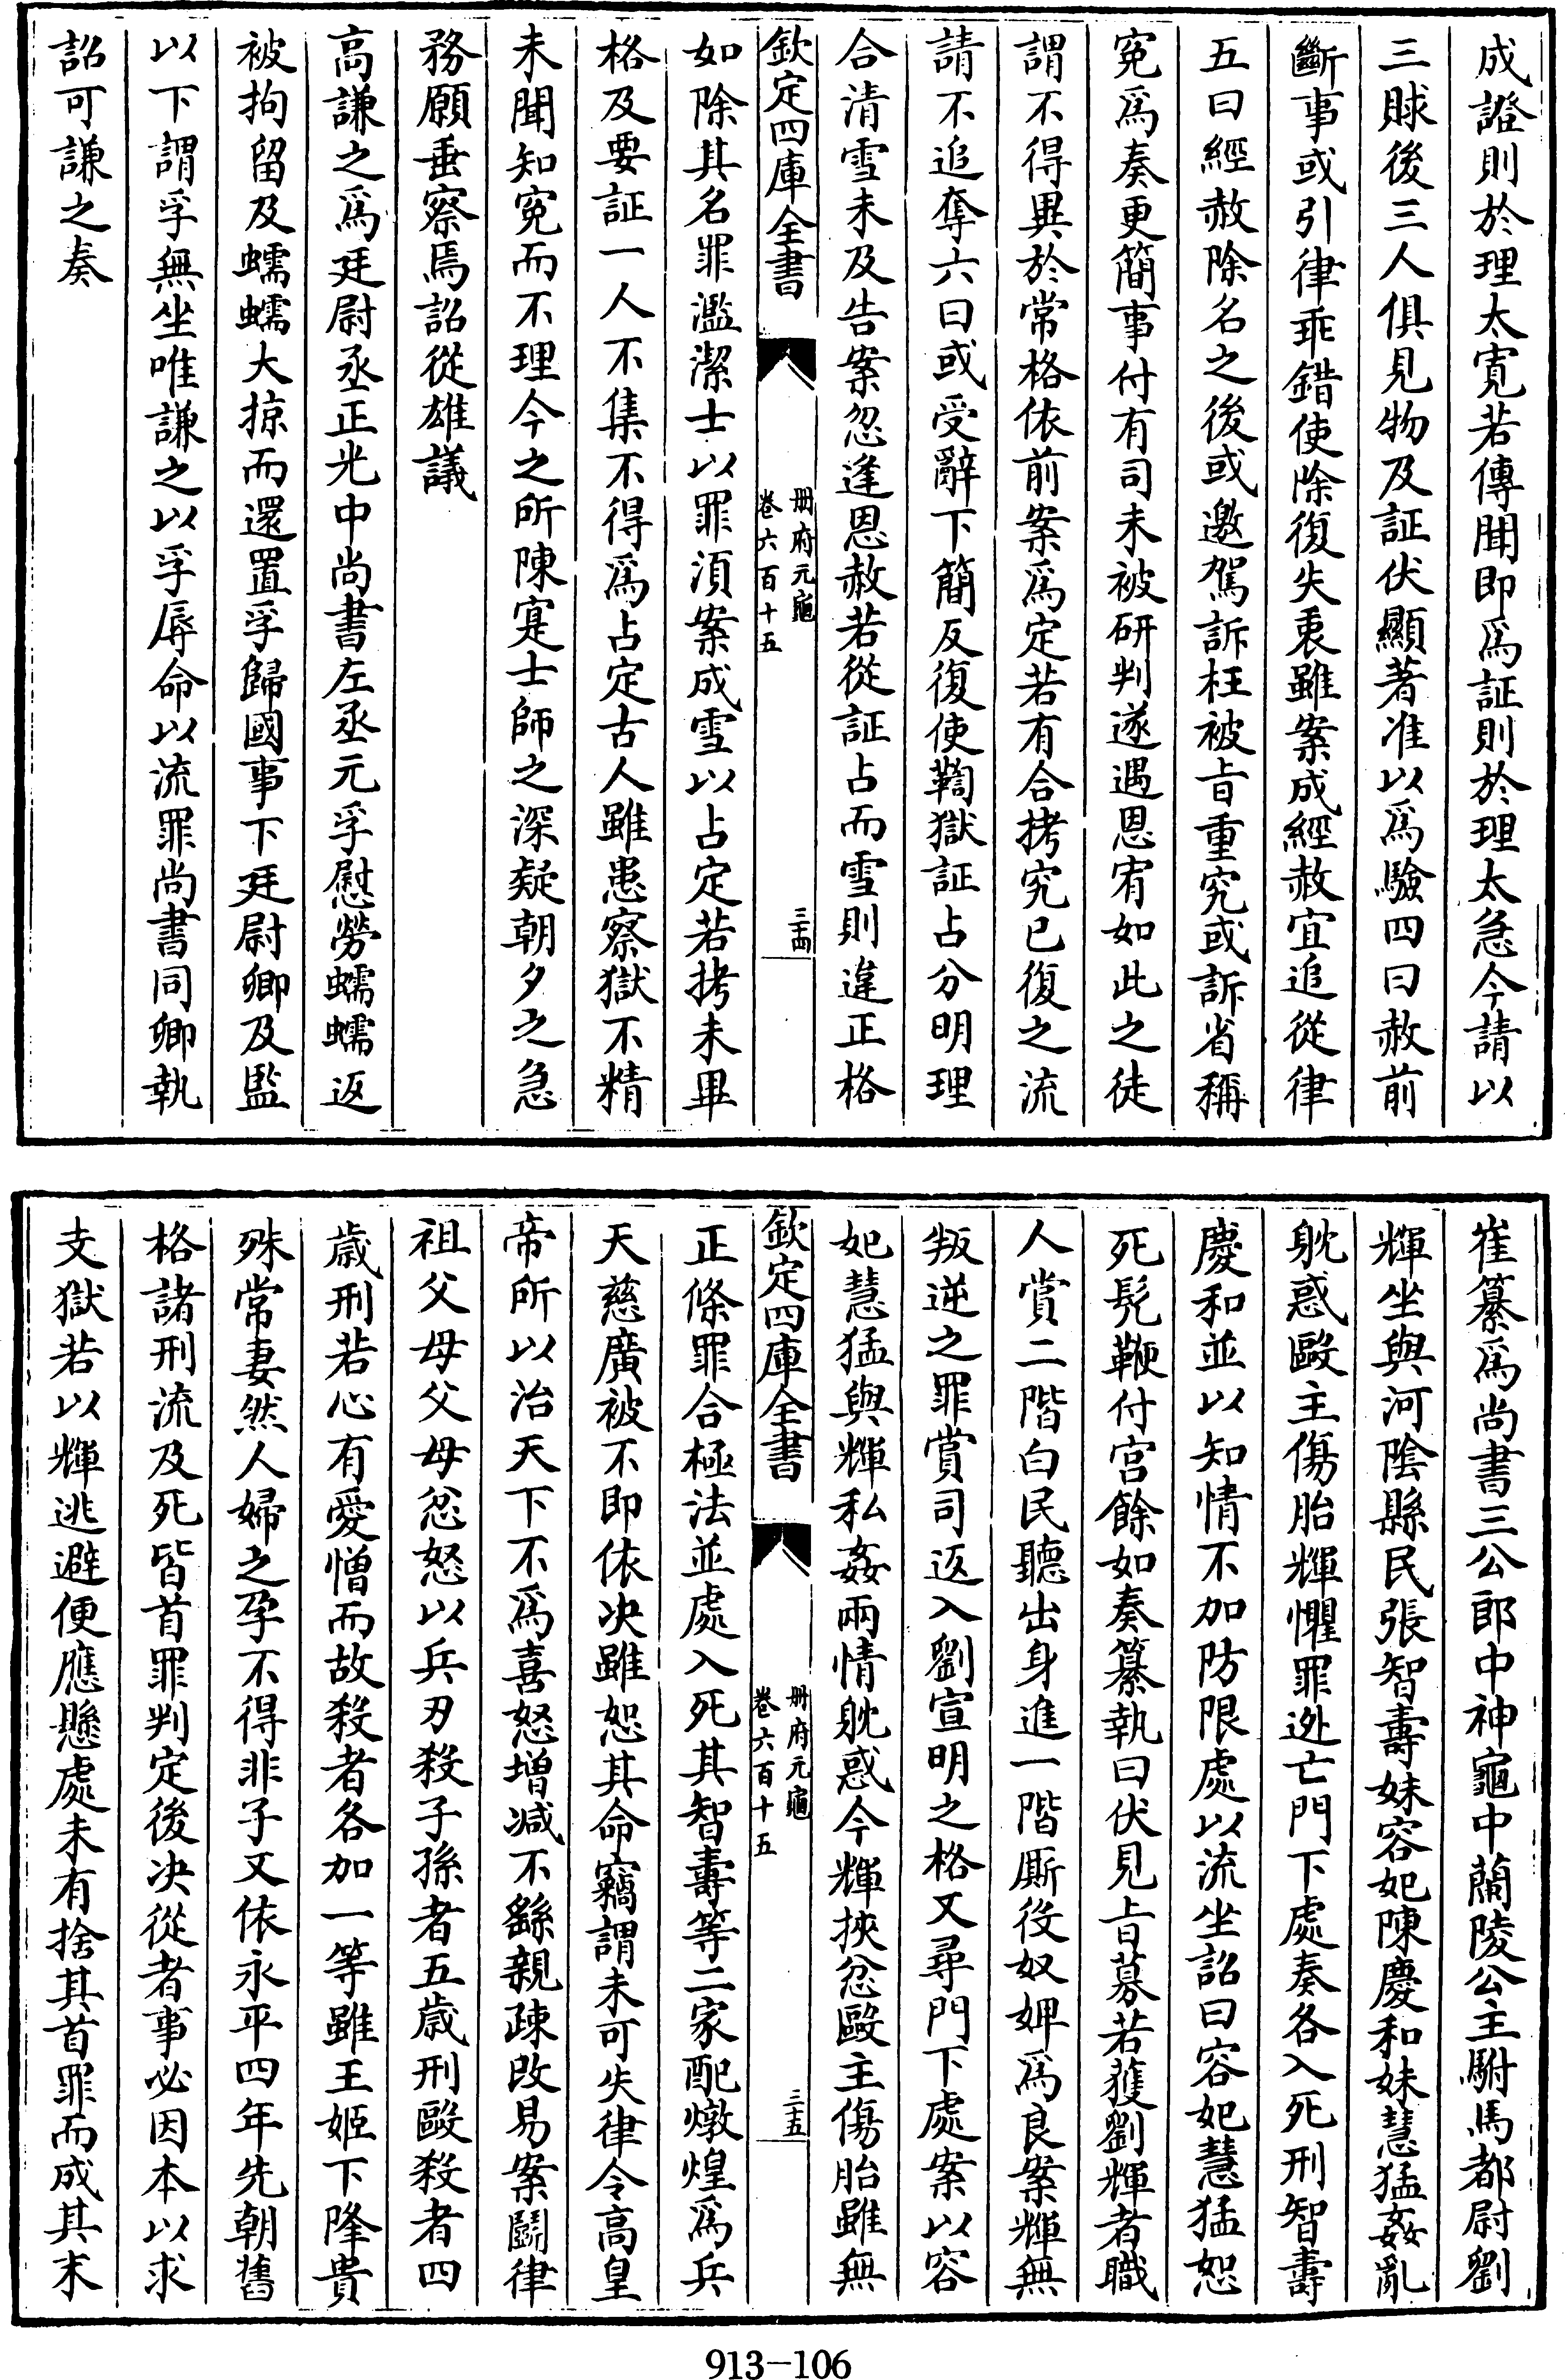 成證則於理太寛若傳聞即爲証則於理太急今請以
三賕後三人俱見物及証伏顯著准以爲驗四曰赦前
斷事或引律乖錯使除復失衷雖案成經赦宜追從律
五曰經赦除名之後或邀駕訴枉被旨重究或訴省稱
寃爲奏更簡事付有司未被研判遂遇恩宥如此之徒
謂不得異於常格依前案爲定若有合拷究已復之流
請不追奪六曰或受辭下簡反復使鞫獄証占分明理
合清雪未及告案忽逢恩赦若從証占而雪則違正格
欽定四庫全書
冊府元龜
卷六百十五
三十四
如除其名罪濫潔士以罪須案成雪以占定若拷未畢
格及要証一人不集不得爲占定古人雖患察獄不精
未聞知寃而不理今之所陳寔士師之深疑朝夕之急
務願垂察焉詔從雄議
高謙之爲廷尉丞正光中尚書左丞元孚慰勞蠕蠕返
被拘留及蠕蠕大掠而還置孚歸國事下廷尉卿及監
以下謂孚無坐唯謙之以孚辱命以流罪尚書同卿執
詔可謙之奏
崔纂爲尚書三公郎中神龜中蘭陵公主駙馬都尉劉
輝坐與河陰縣民張智壽妹容妃陳慶和妹慧猛姦亂
躭惑毆主傷胎輝懼罪逃亡門下處奏各入死刑智壽
慶和並以知情不加防限處以流坐詔曰容妃慧猛恕
死髠鞭付宮餘如奏纂執曰伏見旨募若獲劉輝者職
人賞二階白民聽出身進一階厮役奴婢爲良案輝無
叛逆之罪賞司返入劉宣明之格又尋門下處案以容
妃慧猛與輝私姦兩情躭惑今輝挾忿毆主傷胎雖無
欽定四庫全書
冊府元龜
卷六百十五
三十五
正條罪合極法並處入死其智壽等二家配燉煌爲兵
天慈廣被不即依决雖恕其命竊謂未可失律令高皇
帝所以治天下不爲喜怒增减不繇親疎改易案鬭律
祖父母父母忿怒以兵刃殺子孫者五歳刑毆殺者四
歳刑若心有愛憎而故殺者各加一等雖王姬下降貴
殊常妻然人婦之孕不得非子又依永平四年先朝舊
格諸刑流及死皆首罪判定後决從者事必因本以求
支獄若以輝逃避便應懸處未有捨其首罪而成其末
913-106